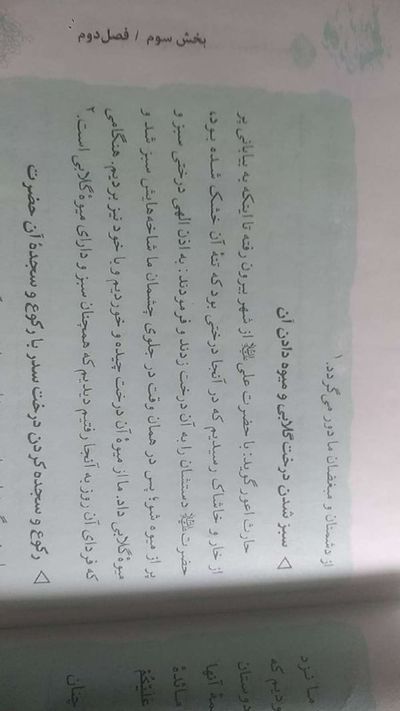 بخش سوم / فصل دوم
از دشمنان و مبغضان ما دور می‌گردد.۱
◁ سبز شدن درخت گلابی و میوه دادن آن
حارث اعور گوید: با حضرت علی ﷷ از شهر بیرون رفته تا اینکه به بیابانی پر
از خار و خاشاک رسیدیم که در آنجا درختی بود که تنهٔ آن خشک شده بود،
حضرت ﷷ دستشان را به آن درخت زدند و فرمودند: به اذن الهی درختی سبز و
پر از میوه شو؛ پس در همان وقت در جلوی چشمان ما شاخه‌هایش سبز شد و
میوهٔ گلابی داد. ما از میوهٔ آن درخت چیده و خوردیم و با خود نیز بردیم. هنگامی
که فردای آن روز به آنجا رفتیم دیدیم که همچنان سبز و دارای میوهٔ گلابی است.۲
◁ رکوع و سجده کردن درخت سدر با رکوع و سجدهٔ آن حضرت
ما نزد
ودیم که
دوستان
مهٔ آنها
مائدهٔ
عَلَیْکُمْ
چنان